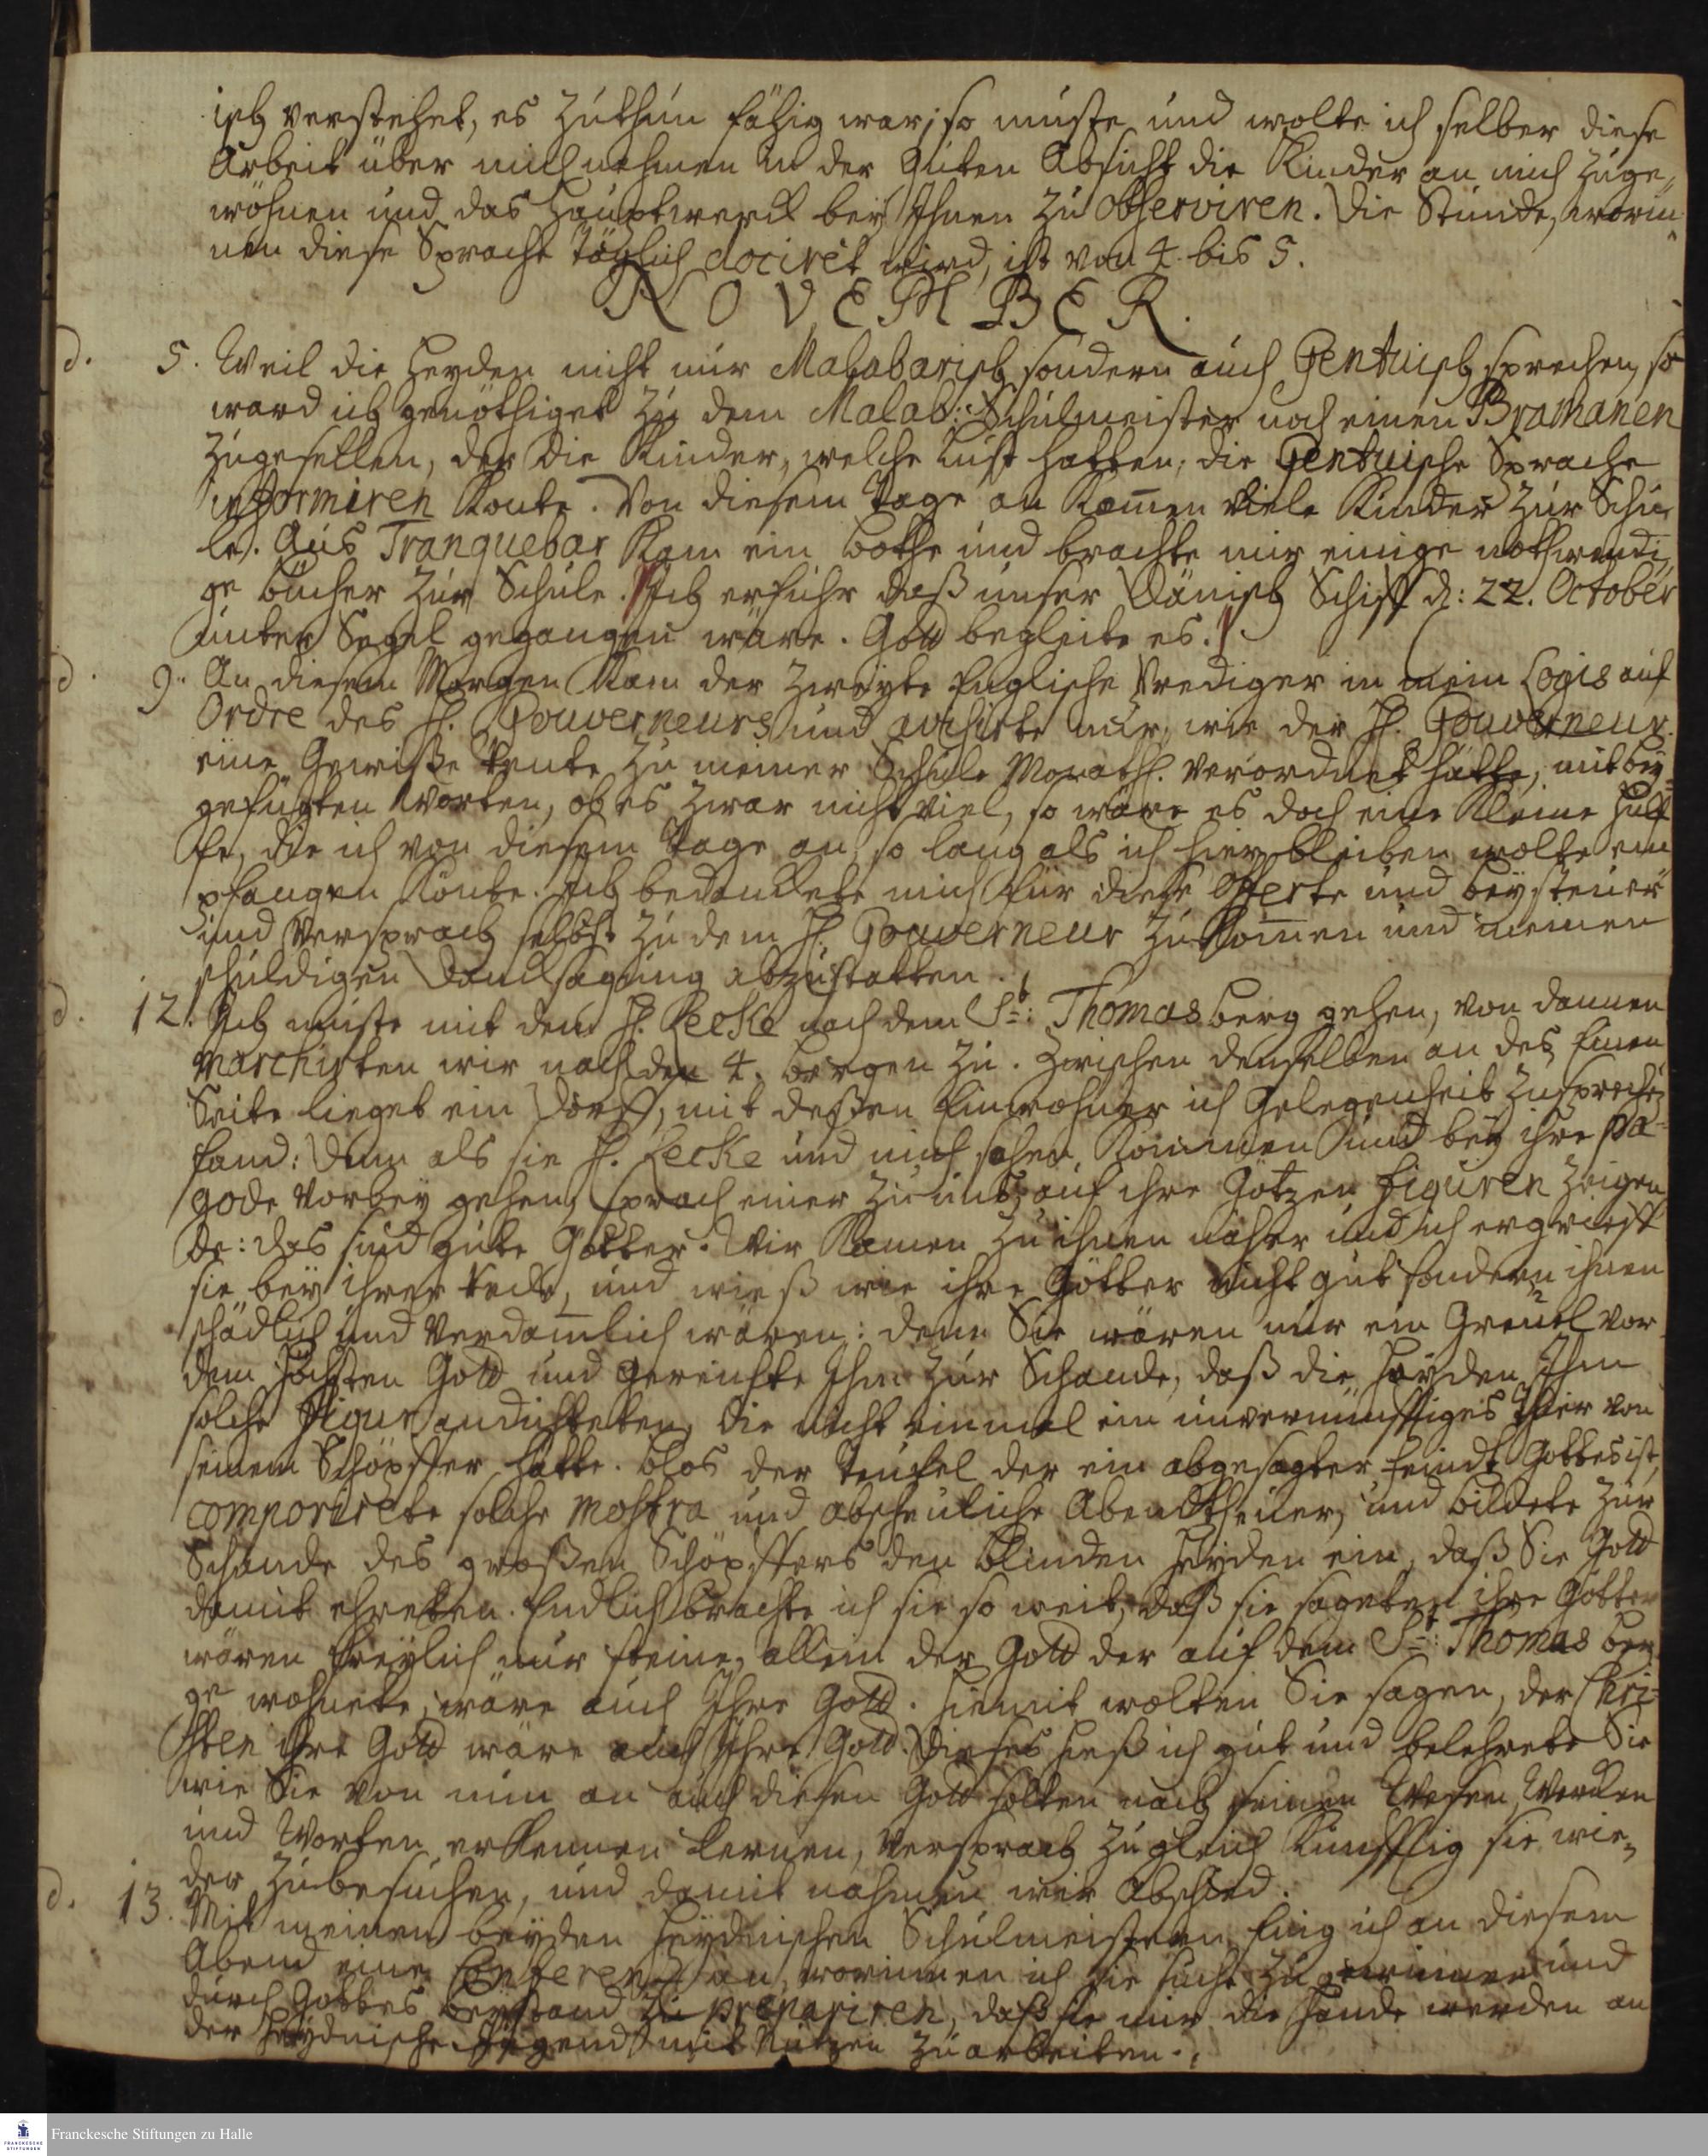 isch verstehet, es zuthun fähig war; so muste und wolte ich selber diese
Arbeit über mich nehmen in der Guten Absicht die Kinder an mich zuge„
wöhnen und das Hauptwerck bey Ihnen zu observiren. Die Stunde, worin„
nen diese Sprache täglich dociret wird, ist von 4. bis 5.
NOVEMBER.
d. 5. Weil die Heyden nicht nur Malabarisch sondern auch Gentuisch sprechen, so
ward ich genöthiget zu dem Malab: Schulmeister noch einen Bramanen
zugesellen, der die Kinder, welche Lust hatten, die Gentuische Sprache
informiren konte. Von diesem Tage an kam̄en viele Kinder zur Schu„
le. Aus Tranquebar kam ein Bothe und brachte mir einige nothwendi„
ge Bücher zur Schule. Ich erfuhr daß unser Dänisch Schiff d: 22. October
unter Segel gegangen wäre. Gott begleite es.
d. 9. An diesem Morgen kam der zweyte Englische Prediger in mein Logis auf
Ordre des H. Gouverneurs und avisirte mir, wie der H. Gouverneur
eine Gewiße Rente zu meiner Schule Monathl. verordnet hätte, mit bey„
gefügten Worten, ob es zwar nicht viel, so wäre es doch eine kleine Hülf
fe, die ich von diesem Tage an, so lang als ich hier bleiben wolte em
pfangen konte. Ich bedanckete mich für diese Offerte und Beysteuer
und versprach selbst zu dem H. Gouverneur zukom̄en und meinen
schuldigen Dancksagung abzustatten.
d. 12. Ich muste mit dem H. Lecke nach dem St: Thomas berg gehen, von dannen
marchirten wir nach den 4. bergen zu. Zwischen denselben an der Einen
Seite lieget ein Dorff, mit deßen Einwohner ich Gelegenheit zusprechen
fand: Denn als sie H. Lecke und mich sahen kommen und bey ihre Pa„
gode vorbey gehen, sprach einer zu uns, auf ihre Götzen Figuren zeigen
de: das sind gute Götter. Wir kamen zu ihnen näher und ich ergrieff
sie bey ihrer Rede, und wieß wie ihre Götter nicht gut sondern ihnen
schädlich und verdam̄lich wären: denn Sie wären nur ein Greuel vor
dem Höchsten Gott und gereichte Ihm zur Schande, daß die Heyden Ihm
solche Figur andichteten, die nicht einmal ein unvernünfftiges Thier von
seinem Schöpffer hätte. Blos der Teufel der ein abgesagter Feindt Gottes ist,
componirete solche Mostra und abscheuliche Abendtheuer, und bildete zur
Schande des großen Schöpffers den Blinden Heyden ein, daß Sie Gott
damit ehreten. Endlich brachte ich sie so weit, daß sie sageten ihre Götter
wären freylich nur steine, allein der Gott der auf dem St: Thomas ber
ge wohnete, wäre auch Ihre Gott. Hiemit wolten Sie sagen, der Chri„
sten ihre Gott wäre auch Ihre Gott. Dieses hieß ich gut und belehrete Sie
wie Sie von nun an auch diesen Gott solten nach seinen Wesen, Wercken
und Worten erkennen lernen, versprach zugleich künfftig sie wie„
der zubesuchen, und damit nahmen wir Abschied.
d. 13. Mit meinen beyden Heydnischen Schulmeistern fing ich an diesem
Abend eine Conferenz an, worinnen ich sie sucht zu gewinnen und
durch Gottes Beystand zu prepariren, daß sie mir die Hände werden an
der Heydnische Jugend mit Nutzen zu arbeiten.
Franckesche Stiftungen zu Halle